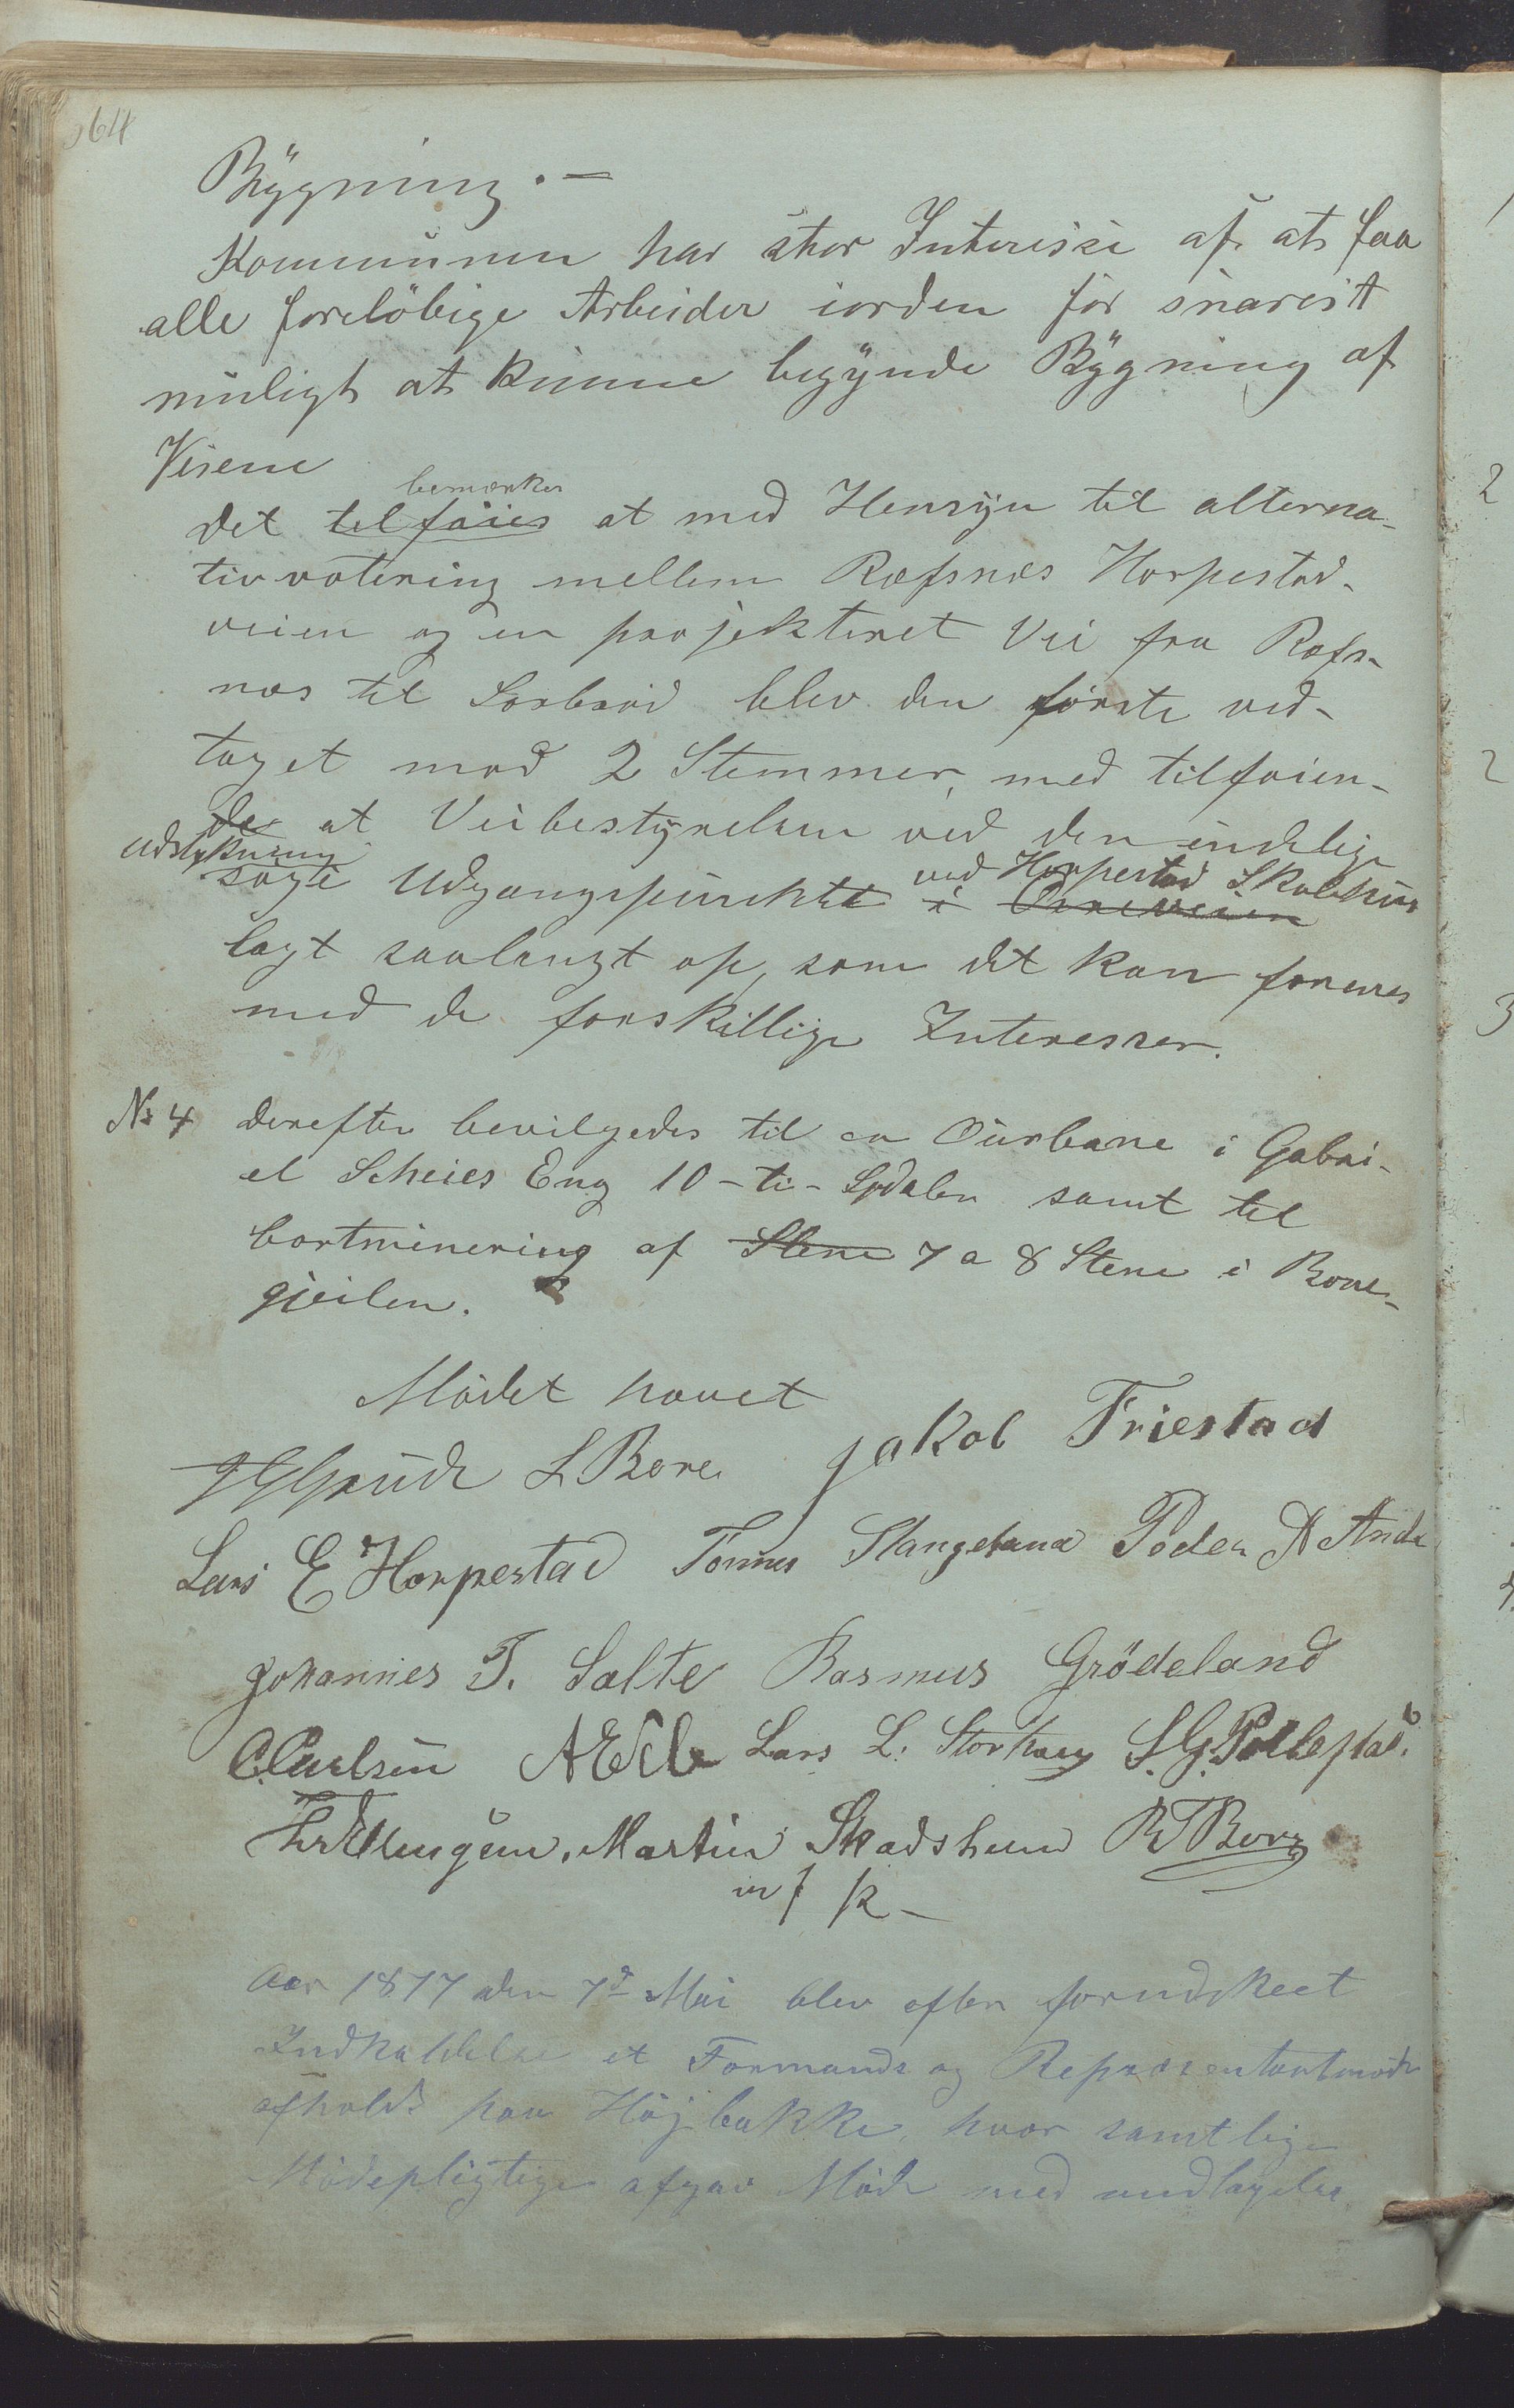 64
Bygning. —
Kommunen har stor Interesse af at faa
alle foreløbige Arbeider iorden for snarest
muligt at kunne begynde Bygning af
Veiene
bemærkes
Det tilføies at med Hensyn til alterna-
tivvotering mellem Refsnæs Horpestad-
veien og en projekteret Vei fra Refs-
næs til Sørbrød blev den første ved-
taget mod 2 Stemmer, med tilføien-
de at Veibestyrelsen ved den endelige
udstykning
ved Horpestad Skolehus
søgte Udgangspunktet i
lagt saalangt op, som det kan forenes
med de forskillige Interesser.
No 4 Derefter bevilgedes til en i Gabri-
el Scheies Eng 10 - ti - Spdaler samt til
bortminering af Stene 7 a 8 Stene i Bore-
gjeilen.
Mødet hævet
L Bore. Jakob Friestad
Lars E Horpestad Tønnes Slangeland Peder A Anda
Johannes T. Salte Rasmus Grödeland
C. Carlsen Lars L. Storhaug S. G. Pollestad.
Martin Skadsheim R T Bore
m f P
Aar 1877 den 7d Mai blev efter forudskeet
Indkaldelse et Formands og Repræsentantmøde
afholdt paa Højbakke, hvor samtlige
Mødepligtige afgav Møde med undtagelse